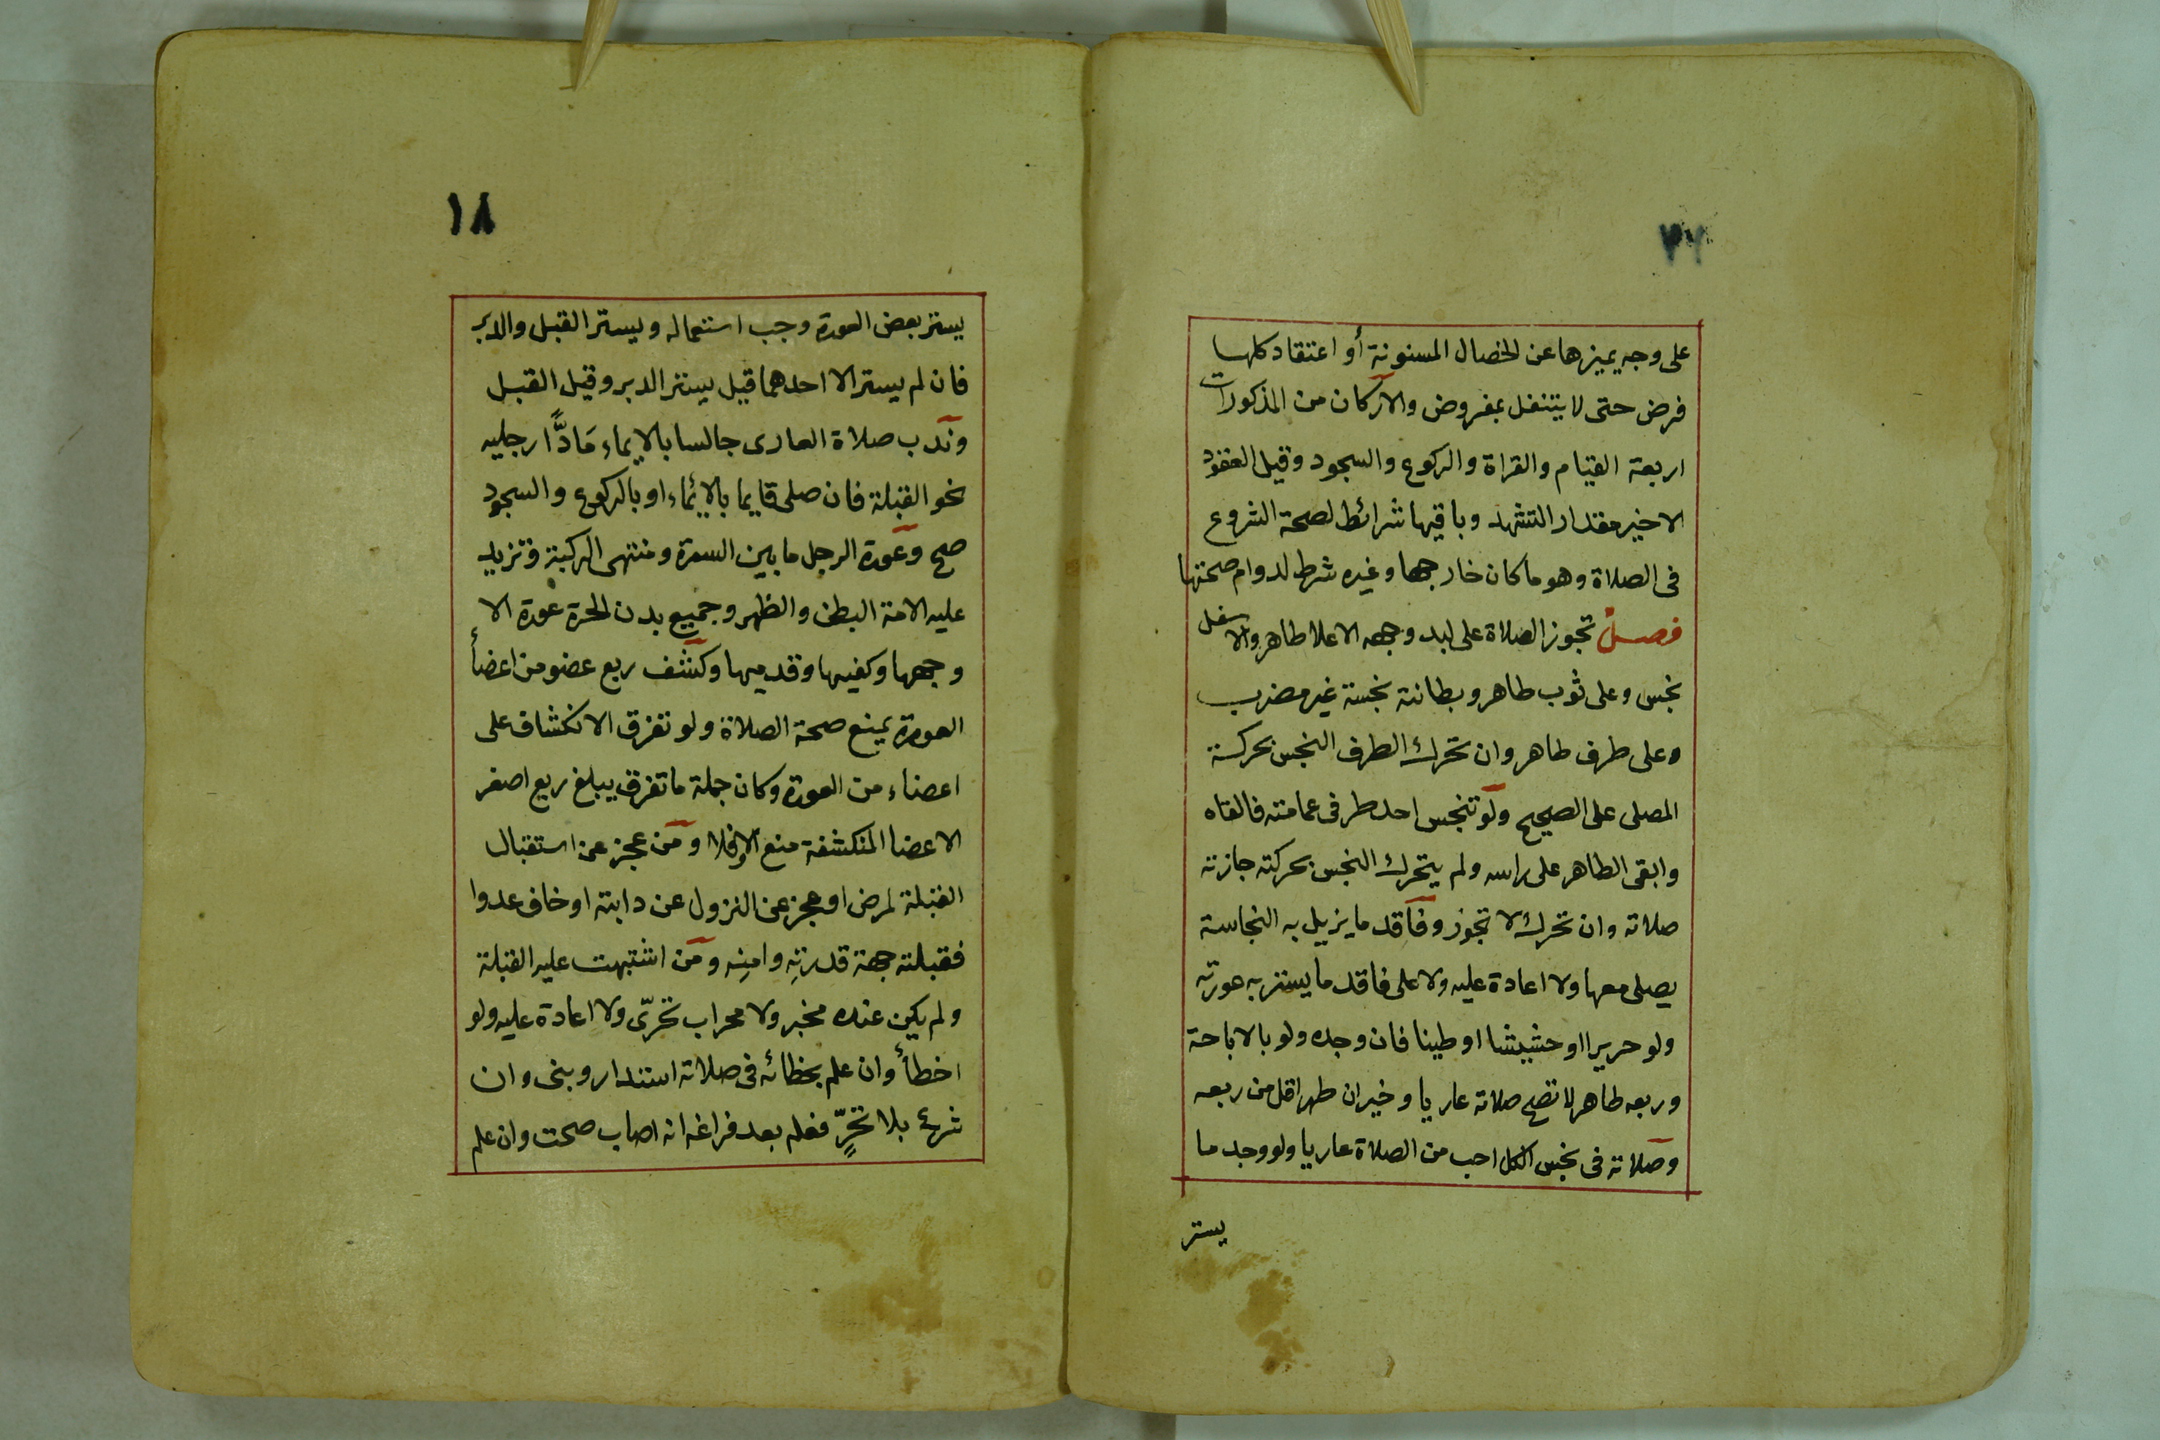 على وجه يميزها عن الخصال المسنونة أو اعتقاد كلها
فرض حتى لا يتنفل بمفروض والاركان من المذكورات
اربعة القيام والقراة والركوع والسجود وقيل العقود
الاخير مقدار التشهد وباقيها شرائط لصحة الشروع
فى الصلاة وهو ما كان خارجها وغيره شرط لدوام صحتها
فصل تجوز الصلاة على لبد وجهه الاعلا طاهر والاسفل
نجس وعلى ثوب طاهر وبطانته نجسة غير مضرب
وعلى طرف طاهر وان تحرك الطرف النجس بحركة
المصلى على الصحيح ولو تنجس احد طرفى عمامته فالقاه
وابقى الطاهر على راسه ولم يتحرك النجس بحركته جازته
صلاته وان تحرك لا تجوز وفاقد ما يزيل به النجاسة
يصلى معها ولا اعادة عليه ولا على فاقد ما يستتر به عورته
ولو حريرا او حشيشا او طينا فان وجده ولو بالاباحة
وربعه طاهر لا تصح صلاته عاريا وخير ان طهر اقل من ربعه
وصلاته فى نجس الكل احب من الصلاة عاريا ولو وجد ما
يستر
١٨
يستر بعض العورة وجب استعماله ويستر القبل والدبر
فان لم يستر الا احدهما قيل يستر الدبر وقيل القبل
وندب صلاة العارى جالسا بالايماء مَادًّا رجليه
نحو القبلة فان صلى قايما بالايماء او بالركوع والسجود
صح وعورة الرجل ما بين السرة ومنتهى الركبة وتزيد
عليه الامة البطن والظهر وجميع بدن الحرة عورة الا
وجهها وكفيها وقدميها وكشف ربع عضو من اعضأ
العورة يمنع صحة الصلاة ولو تفرق الانكشاف على
اعضاء من العورة وكان جملة ما تفرق يبلغ ربع اصغر
الاعضا المنكشفة منع والا فلا ومن عجز عن استقبال
القبلة لمرض او عجز عن النزول عن دابته او خاف عدوا
فقبلته جهة قدرته وامنِه ومن اشتبهت عليه القبلة
ولم يكن عنده مخبر ولا محراب تحرّى ولا اعادة عليه ولو
اخطأ وان علم بخطائه فى صلاته استدار وبنى وان
شرع بلا تحرٍّ فعلم بعد فراغه انه اصاب صحت وان علم